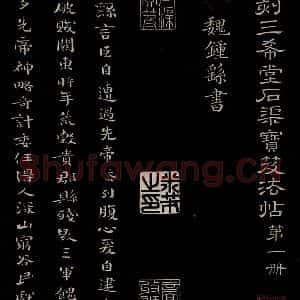 刻三希堂石渠寶笈法帖第一册
魏鍾繇書
繇言臣自遭遇先帝忝列腹心爰自建
破賊關東時年荒穀貴郡縣殘毀三軍餽
多先帝神略奇計委任得人深山窮谷民獻
Shufawang.cn